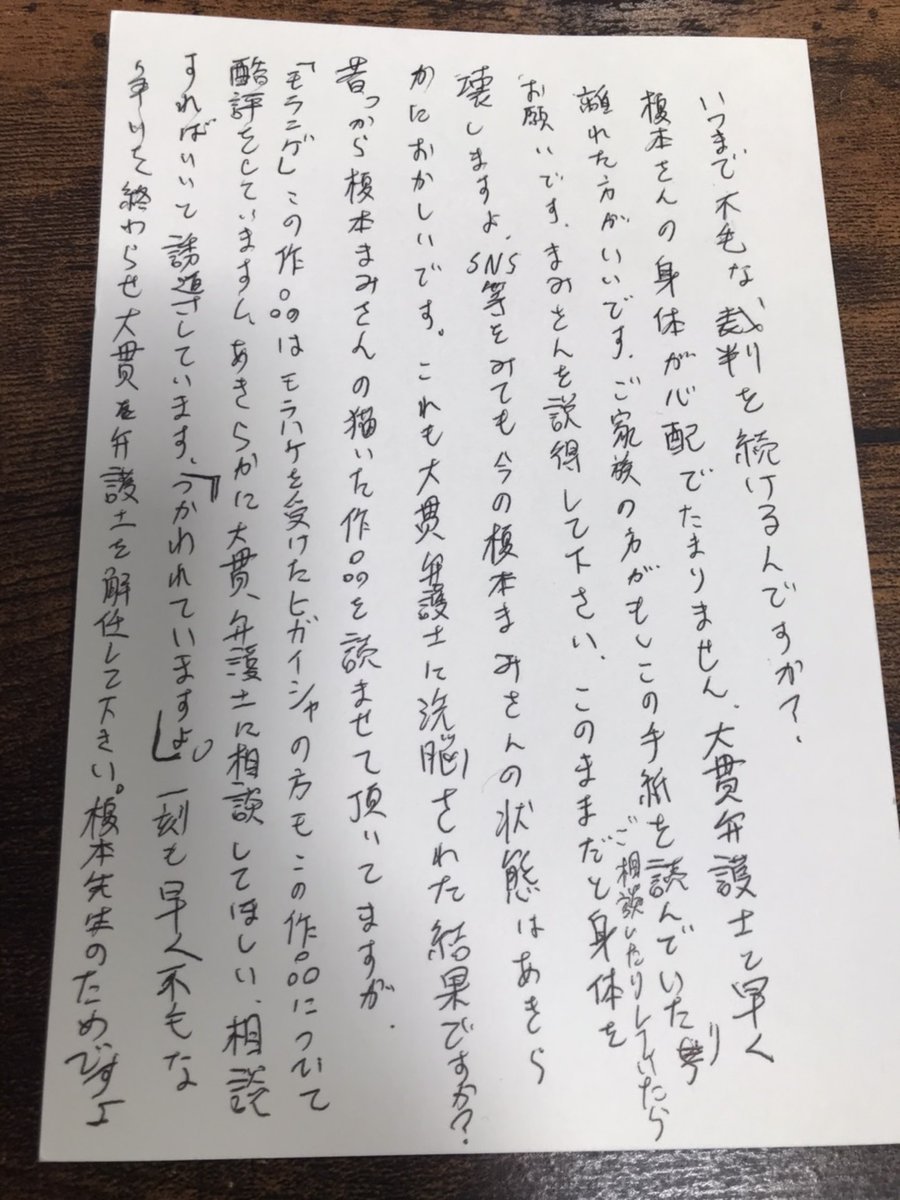 いつまで不毛な裁判を続けるんですか？
榎本さんの身体が心配でたまりません、大貫弁護士て早く
離れた方がいいです、ご家族の方がもしこの手紙を読んでいたり
ご相談したりしていたら
お願いです、まみさんを説得して下さい、このままだと身体を
壊しますよ、SNS等をみても今の榎本まみさんの状態はあきら
かにおかしいです。これも大貫弁護士に洗脳された結果ですか？
昔っから榎本まみさんの猫いた作品を読ませて頂いてますが、
「モラニゲ」この作品はモラハラを受けたヒガイシャの方もこの作品について
酷評をしていますし、あきらかに大貫弁護士に相談してほしい、相談
すればいいて誘導さしています、「つかわれていますよ」。一刻も早く不もな
争いを終わらせ大貫を弁護士を解任して下さい。榎本先生のためですよ